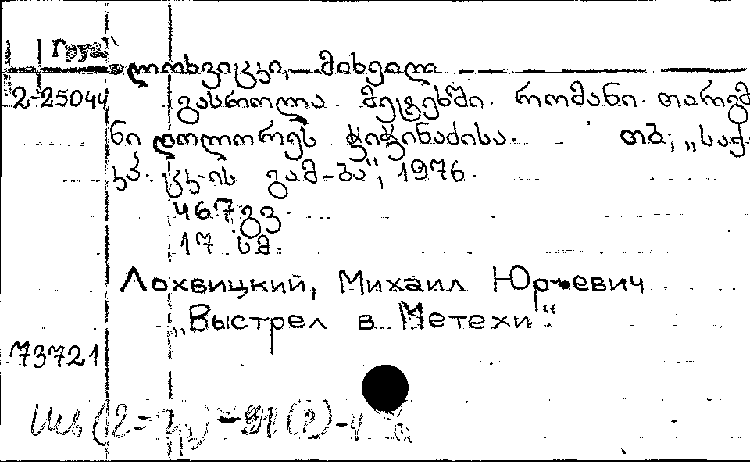 Груз
ლოხვიცკი, მიხეილ
2-25044 გასროლა მეტეხში. რომანი. თარგმ
ნი დოლორეს ჭიჭინაძისა. თბ., „საქ.
კპ. ცკ-ის გამ-ბა“, 1976.
467 გვ.
17 სმ.
Лохвицкий, Михаил Юрьевич
„Выстрел в Метехи“.
73721